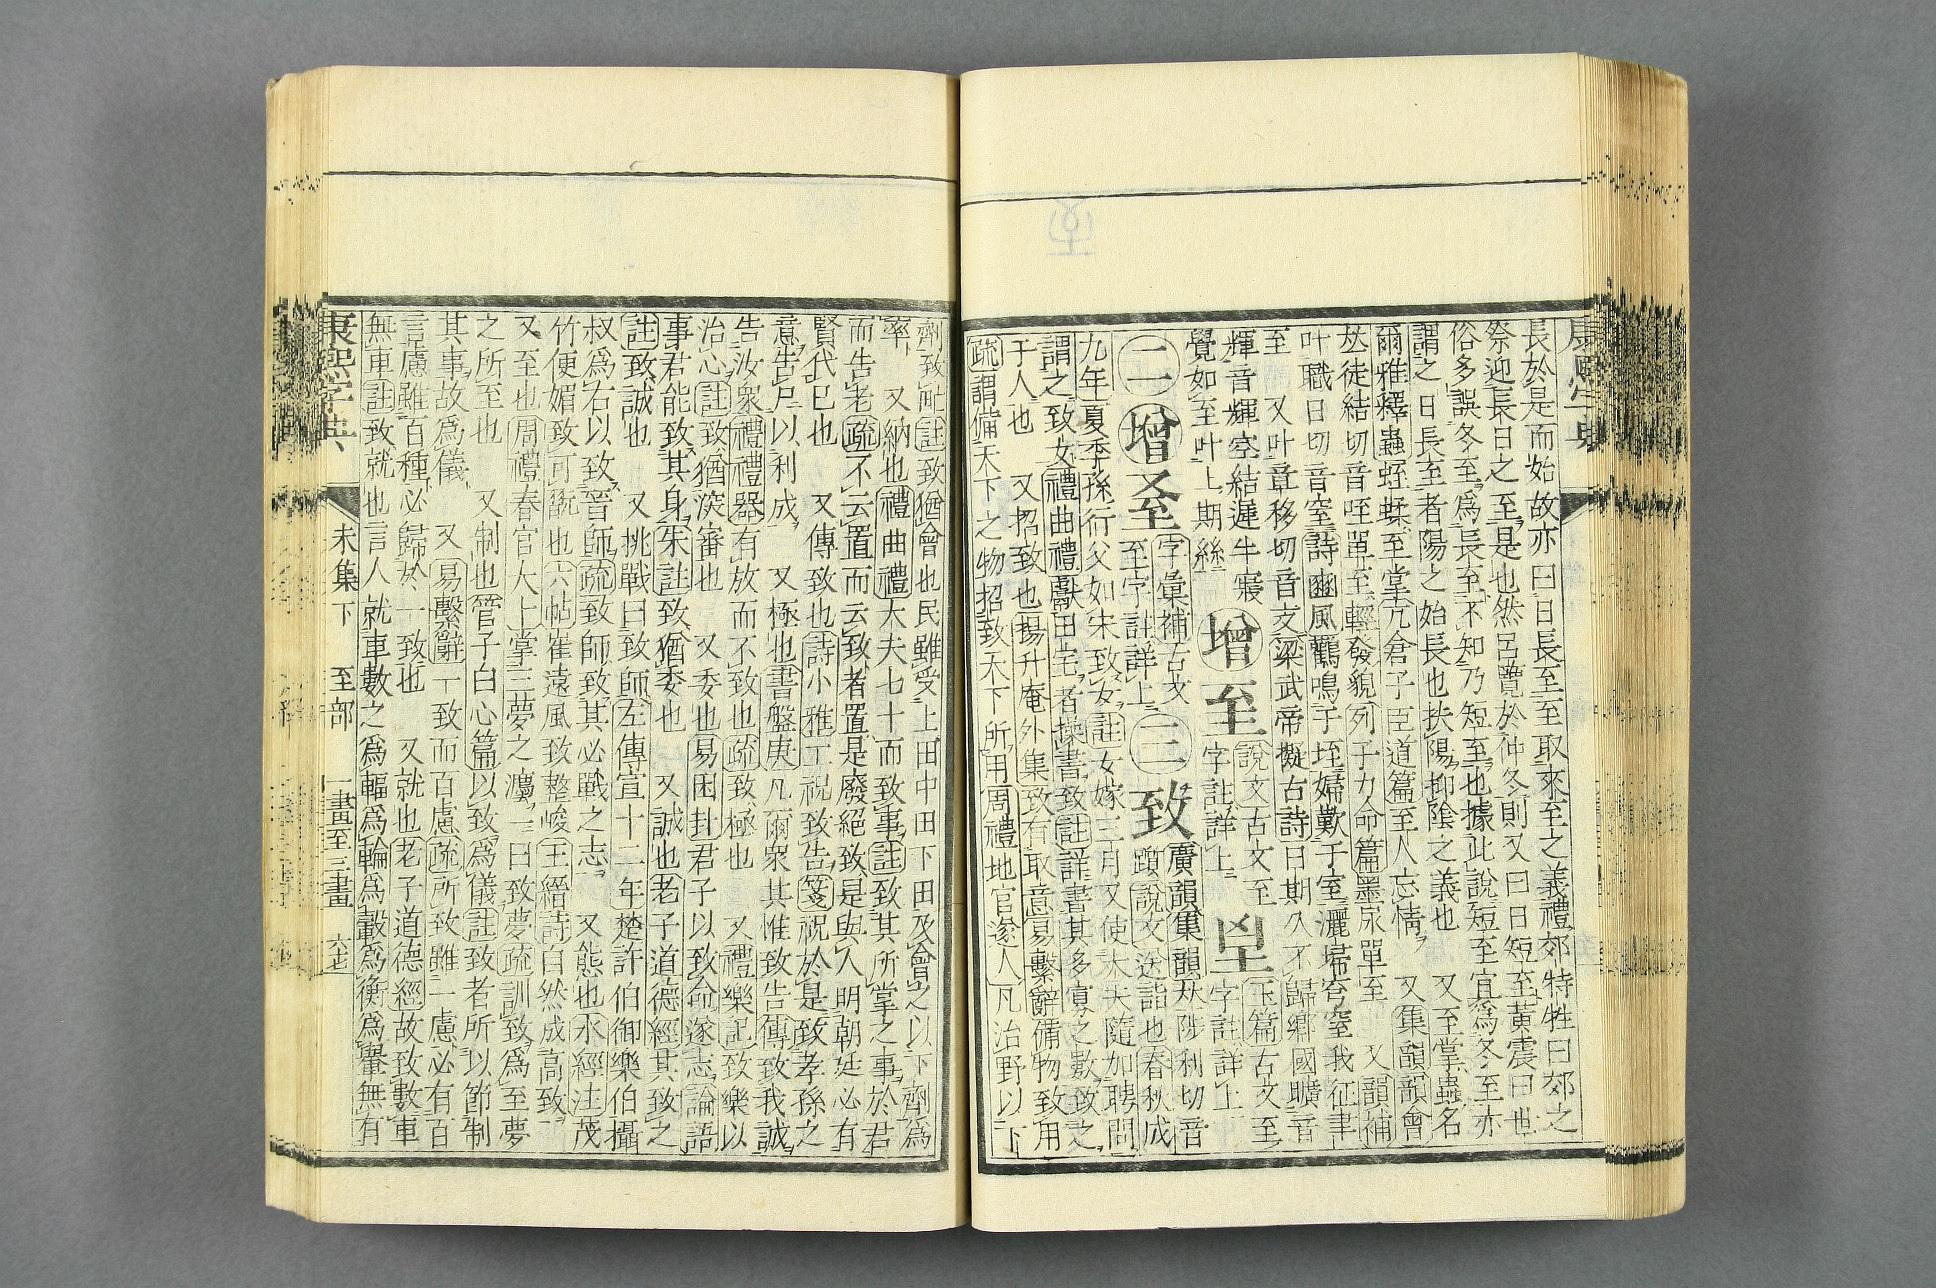 康熙字典
長於是而始故亦曰日長至至取來至之義禮郊特牲曰郊之
祭迎長日之至是也然呂覽於仲冬則又曰日短至黃震曰世
俗多誤冬至爲長至不知乃短至也據此說短至宜爲冬至亦
謂之日長至者陽之始長也扶陽抑陰之義也 又至掌蟲名
爾雅釋蟲蛭蝚至掌亢倉子臣道篇至人忘情 又集韻韻會
𠀤徒結切音咥單至輕發貌列子力命篇墨尿單至 又韻補
叶職日切音窒詩豳風鸛鳴于垤婦歎于室灑埽穹窒我征聿
至 又叶章移切音支梁武帝擬古詩日期久不歸鄉國曠音
輝音輝空結遲半寢
覺如至叶上期絲 增 至 說文古文至字註詳上 𦤳 玉篇古文至字註詳上
二 增 𦤵 字彙補古文至字註詳上 三 致 廣韻集韻𠀤陟利切音躓說文送詣也春秋成
九年夏季孫行父如宋致女註女嫁三月又使大夫隨加聘問
謂之致女禮曲禮獻田宅者操書致註詳書其多寡之數致之
于人也 又招致也揚升庵外集致有取意易繫辭備物致用
疏謂備天下之物招致天下所用周禮地官遂人凡治野以下
劑致甿註致猶會也民雖受上田中田下田及會之以下劑爲
率 又納也禮曲禮大夫七十而致事註致其所掌之事於君
而告老疏不云置而云致者置是廢絕致是與人明朝廷必有
賢代已也 又傳致也詩小雅工祝致告箋祝於是致孝孫之
意告尸以利成 又極也書盤庚凡爾衆其惟致告傳致我誠
告汝衆禮禮器有放而不致也疏致極也 又禮樂記致樂以
治心註致猶深審也 又委也易困卦君子以致命遂志論語
事君能致其身朱註致猶委也 又誠也老子道德經其致之
註致誠也 又挑戰曰致師左傳宣十二年楚許伯御樂伯攝
叔爲右以致晉師疏致師致其必戰之志 又態也水經注茂
竹便媚致可翫也六帖崔遠風致整峻王縉詩自然成高致
又至也周禮春官大卜掌三夢之灋一曰致夢疏訓致爲至夢
之所至也 又制也管子白心篇以致爲儀註致者所以節制
其事故爲儀 又易繫辭一致而百慮疏所致雖一慮必有百
言慮雖百種必歸於一致也 又就也老子道德經故致數車
無車註致就也言人就車數之爲輻爲輪爲轂爲衡爲轝無有
康熙字典 未集下 至部 一畫至三畫